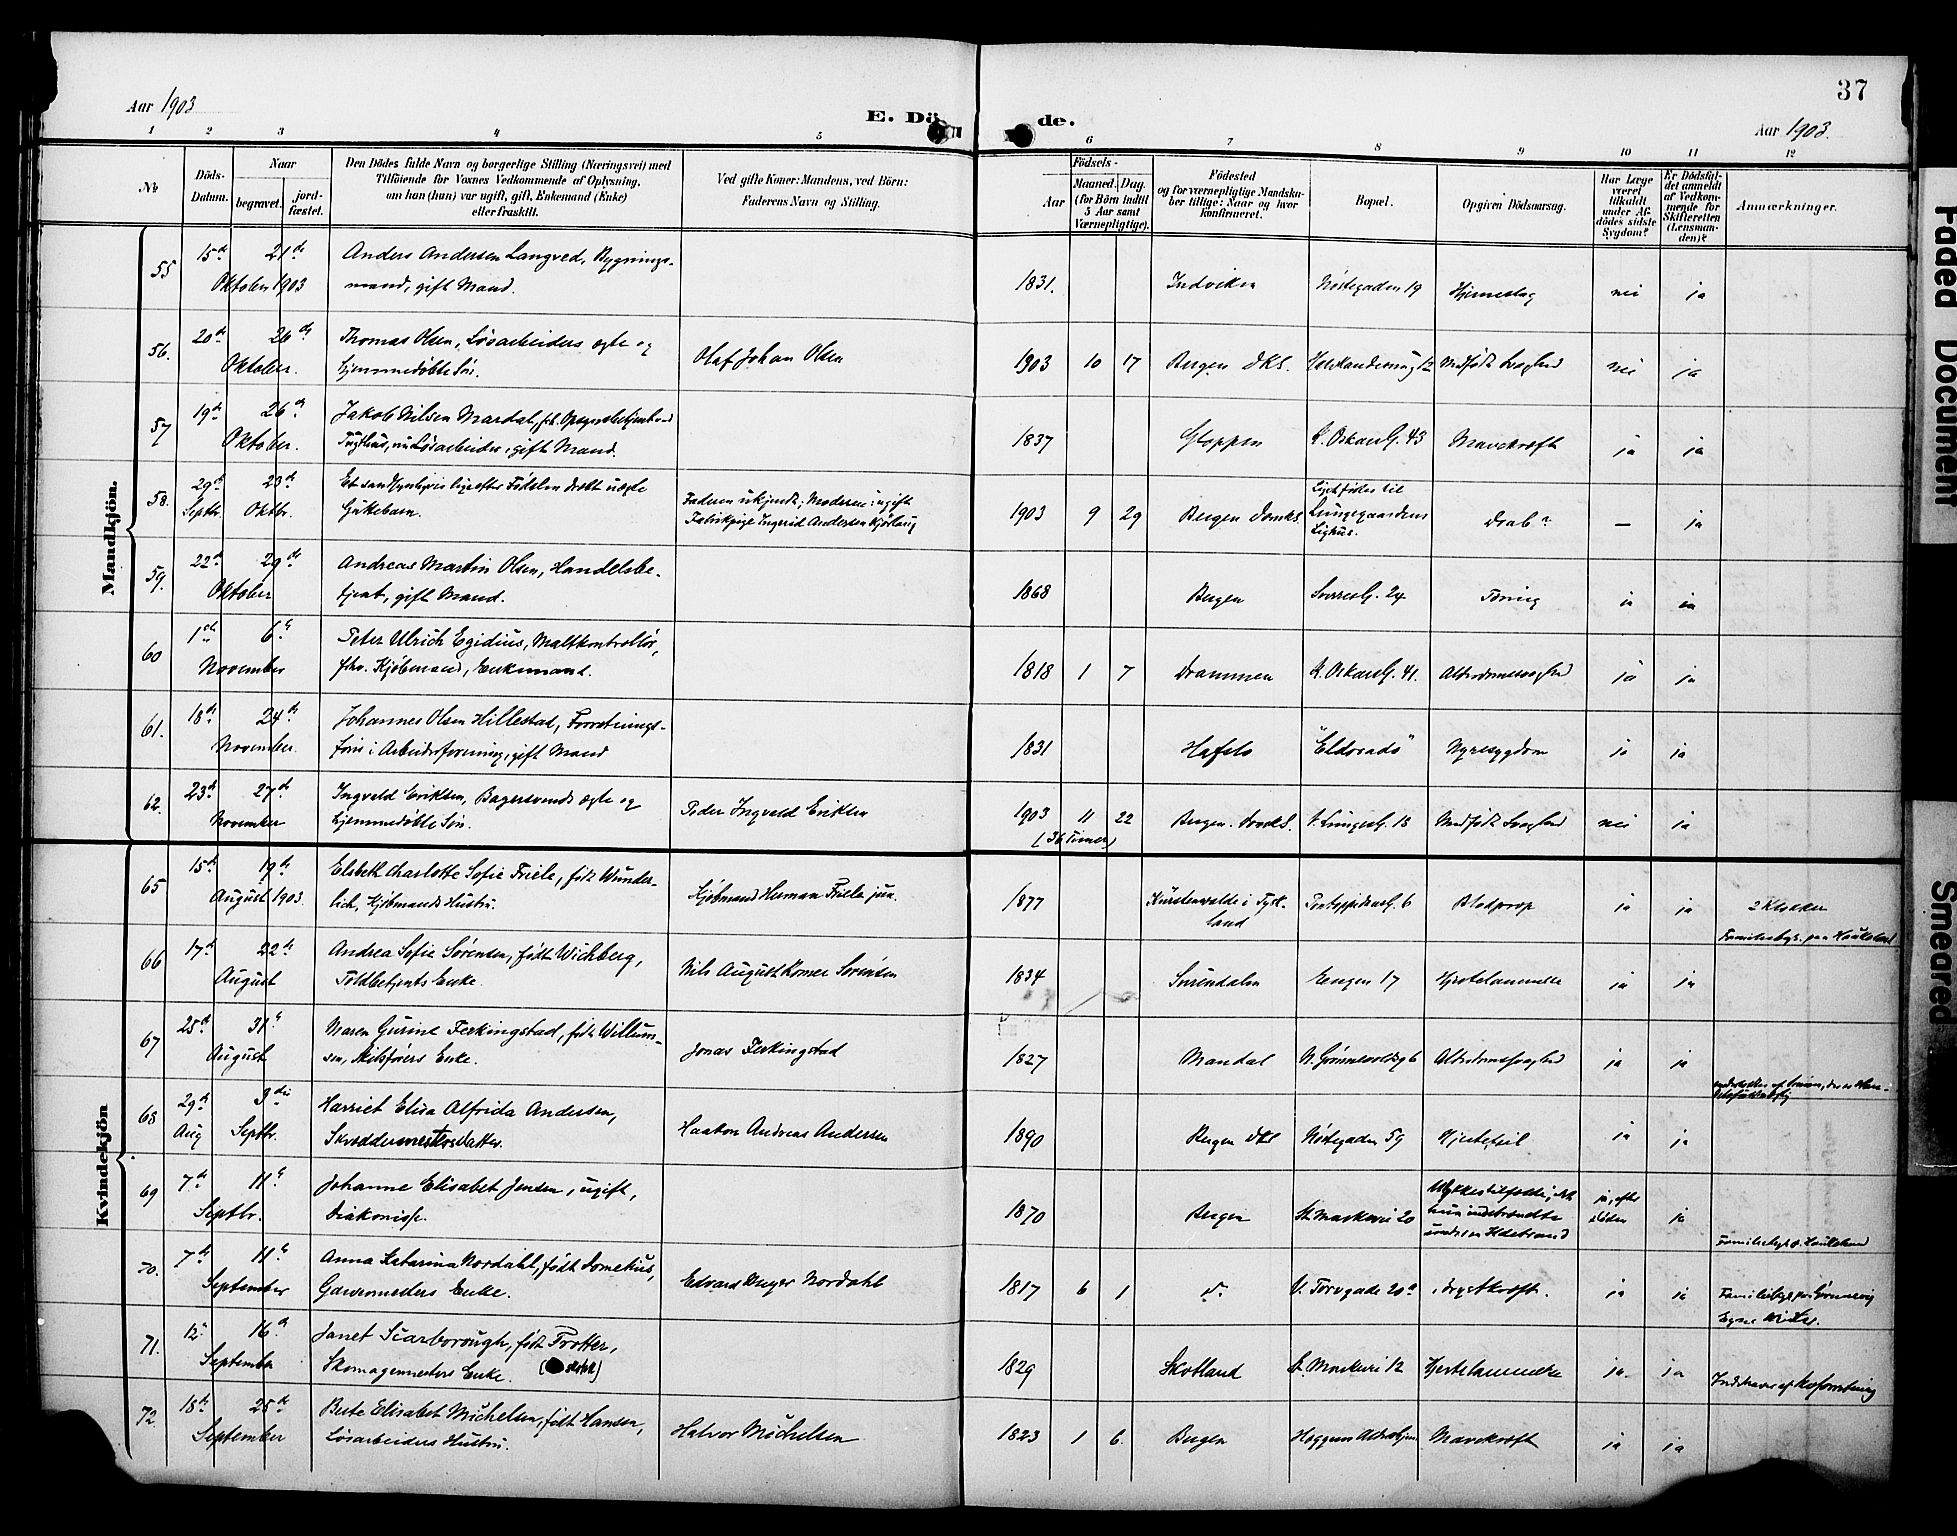 37
Aar 1903
E. Dö
de.
Aar 1903.
1 2 3 4 5 6 7 8 9 10 11 12
No
Döds-Datum.
Naar
begravet.
jord-fæstet.
Den Dödes fulde Navn og borgerlige Stilling (Næringsvei) med
Tilföiende for Voxnes Vedkommende af Oplysning,
om han (hun) var ugift, gift, Enkemand (Enke)
eller fraskilt.
Ved gifte Koner: Mandens, ved Börn:
Faderens Navn og Stilling.
Födsels-
Aar
Maaned. Dag.
(for Börn indtil
5 Aar samt
Værnepligtige).
Födested
og for værnepligtige Mandska-
ber tillige: Naar og hvor
konfirmeret.
Bopæl.
Opgiven Dödsaarsag.
Har Læge
været
tilkaldt
under Af-
dödes sidste
Sygdom?
Er Dödsfal-
det anmeldt
af Vedkom-
mende for
Skifteretten
(Lensman-
den)?
Anmærkninger.
Mandkjön.
55 15de 21de Anders Andersen Langved, Bygnings-
Oktober 1903 mand, gift Mand. 1831. Indviken Nöstegaden 19 Hjerneslag nei ja
56. 20de 26de Thomas Olsen, Løsarbeiders ægte og
Oktober. hjemmedøbte Søn. Olaf Johan Olsen 1903 10 17 Bergen DKS. Medfødt Svaghed nei ja
57 19de 26de Jakob Nilsen Mardal,
Oktober. nu Løsarbeider, gift Mand. 1837 Gloppen K. Oskars G. 43 Mavekræft ja ja
58. 29de 23de Et sandsynligvis lige efter Fødselen dræbt uægte
Septbr. Oktbr. Gutebarn. Faderen ukjendt; Moderen: ugift
Fabrikpige Ingerid Andersen 1903 9 29 Bergen Domks. Liget fødes til
Lungegaardens
Lighus. Drab? — ja
59. 22de 29de Andreas Martin Olsen, Handelsbe-
Oktober tjent, gift Mand. 1868 Bergen Sverresg. 24 Tæring ja ja
60 1ste 6te Peter Ulrich Egidius, Maltkontrollør,
November fhv. Kjøbmand, Enkemand. 1818 1 7 Drammen K. Oskars G. 41. Alderdomssvaghed ja ja
61. 18de 24de Johannes Olsen Hillestad, Forretnings-
November. fører i Arbeiderforening, gift Mand 1831 Hafslo "Eldorado" Nyresygdom ja ja
62. 23de 27de Ingveld Eriksen, Bagersvends ægte og
November hjemmedøbte Søn. Peder Ingveld Eriksen 1903 11 22 Bergen. Domks. V. Lunges G. 18 Medfødt Svaghed nei ja
(36 Timer)
Kvindekjön
65 15de 19de Elsbeth Charlotte Sofie Friele, født Wunder-
August 1903. lich, Kjøbmands Hustru. Kjøbmand Herman Friele jun. 1877 Fürstenwalde i Tysk-
land Pontoppidans G. 6 Blodprop ja ja 2 Klokker
Familiebegr. paa Haukeland
66 17de 22de Andrea Sofie Sørensen, født Wichberg,
August Toldbetjents Enke. Nils August Sørensen 1834 Surendalen Engen 17 Hjertelammelse ja ja
67 25de 31te Maren Gurine Ferkingstad, født Willum-
August sen, Skibsførers Enke. Jonas Ferkingstad 1827 Mandal Alderdomssvaghed ja ja
68 29de 3die Harriet Elisa Alfrida Andersen,
Aug Septbr. Skræddermesters Datter. Haakon Andreas Andersen 1890 Bergen dks Nöstegaden 59 Hjertefeil ja ja
69 7de 11te Johanne Elisabet Jensen, ugift,
Septbr. Diakonisse. 1870 Bergen St. Markevei 20 Ulykkestilfælde, idet
hun indebrændte
under en Ildebrand ja, efter
Døden ja
Familiebegr. p. Haukeland
70. 7de 11te Anna Katarina Nordahl, født Domekus,
September Garvermesters Enke. Edvard Meyer Nordahl 1817 6 1 do V. Torvgade 20a Brystkræft. ja ja
71. 12te 16de Janet Scarborough, født Trotter,
September Skomagermesters Enke. 1829 Skotland St. Markevei 12 Hjertelammelse ja. ja
72 18de 25de Berte Elisabet Michelsen, født Hansen,
September Løsarbeiders Hustru. Halvor Michelsen 1823 1 6. Bergen Mavekræft ja ja
Faded Document
Smeared